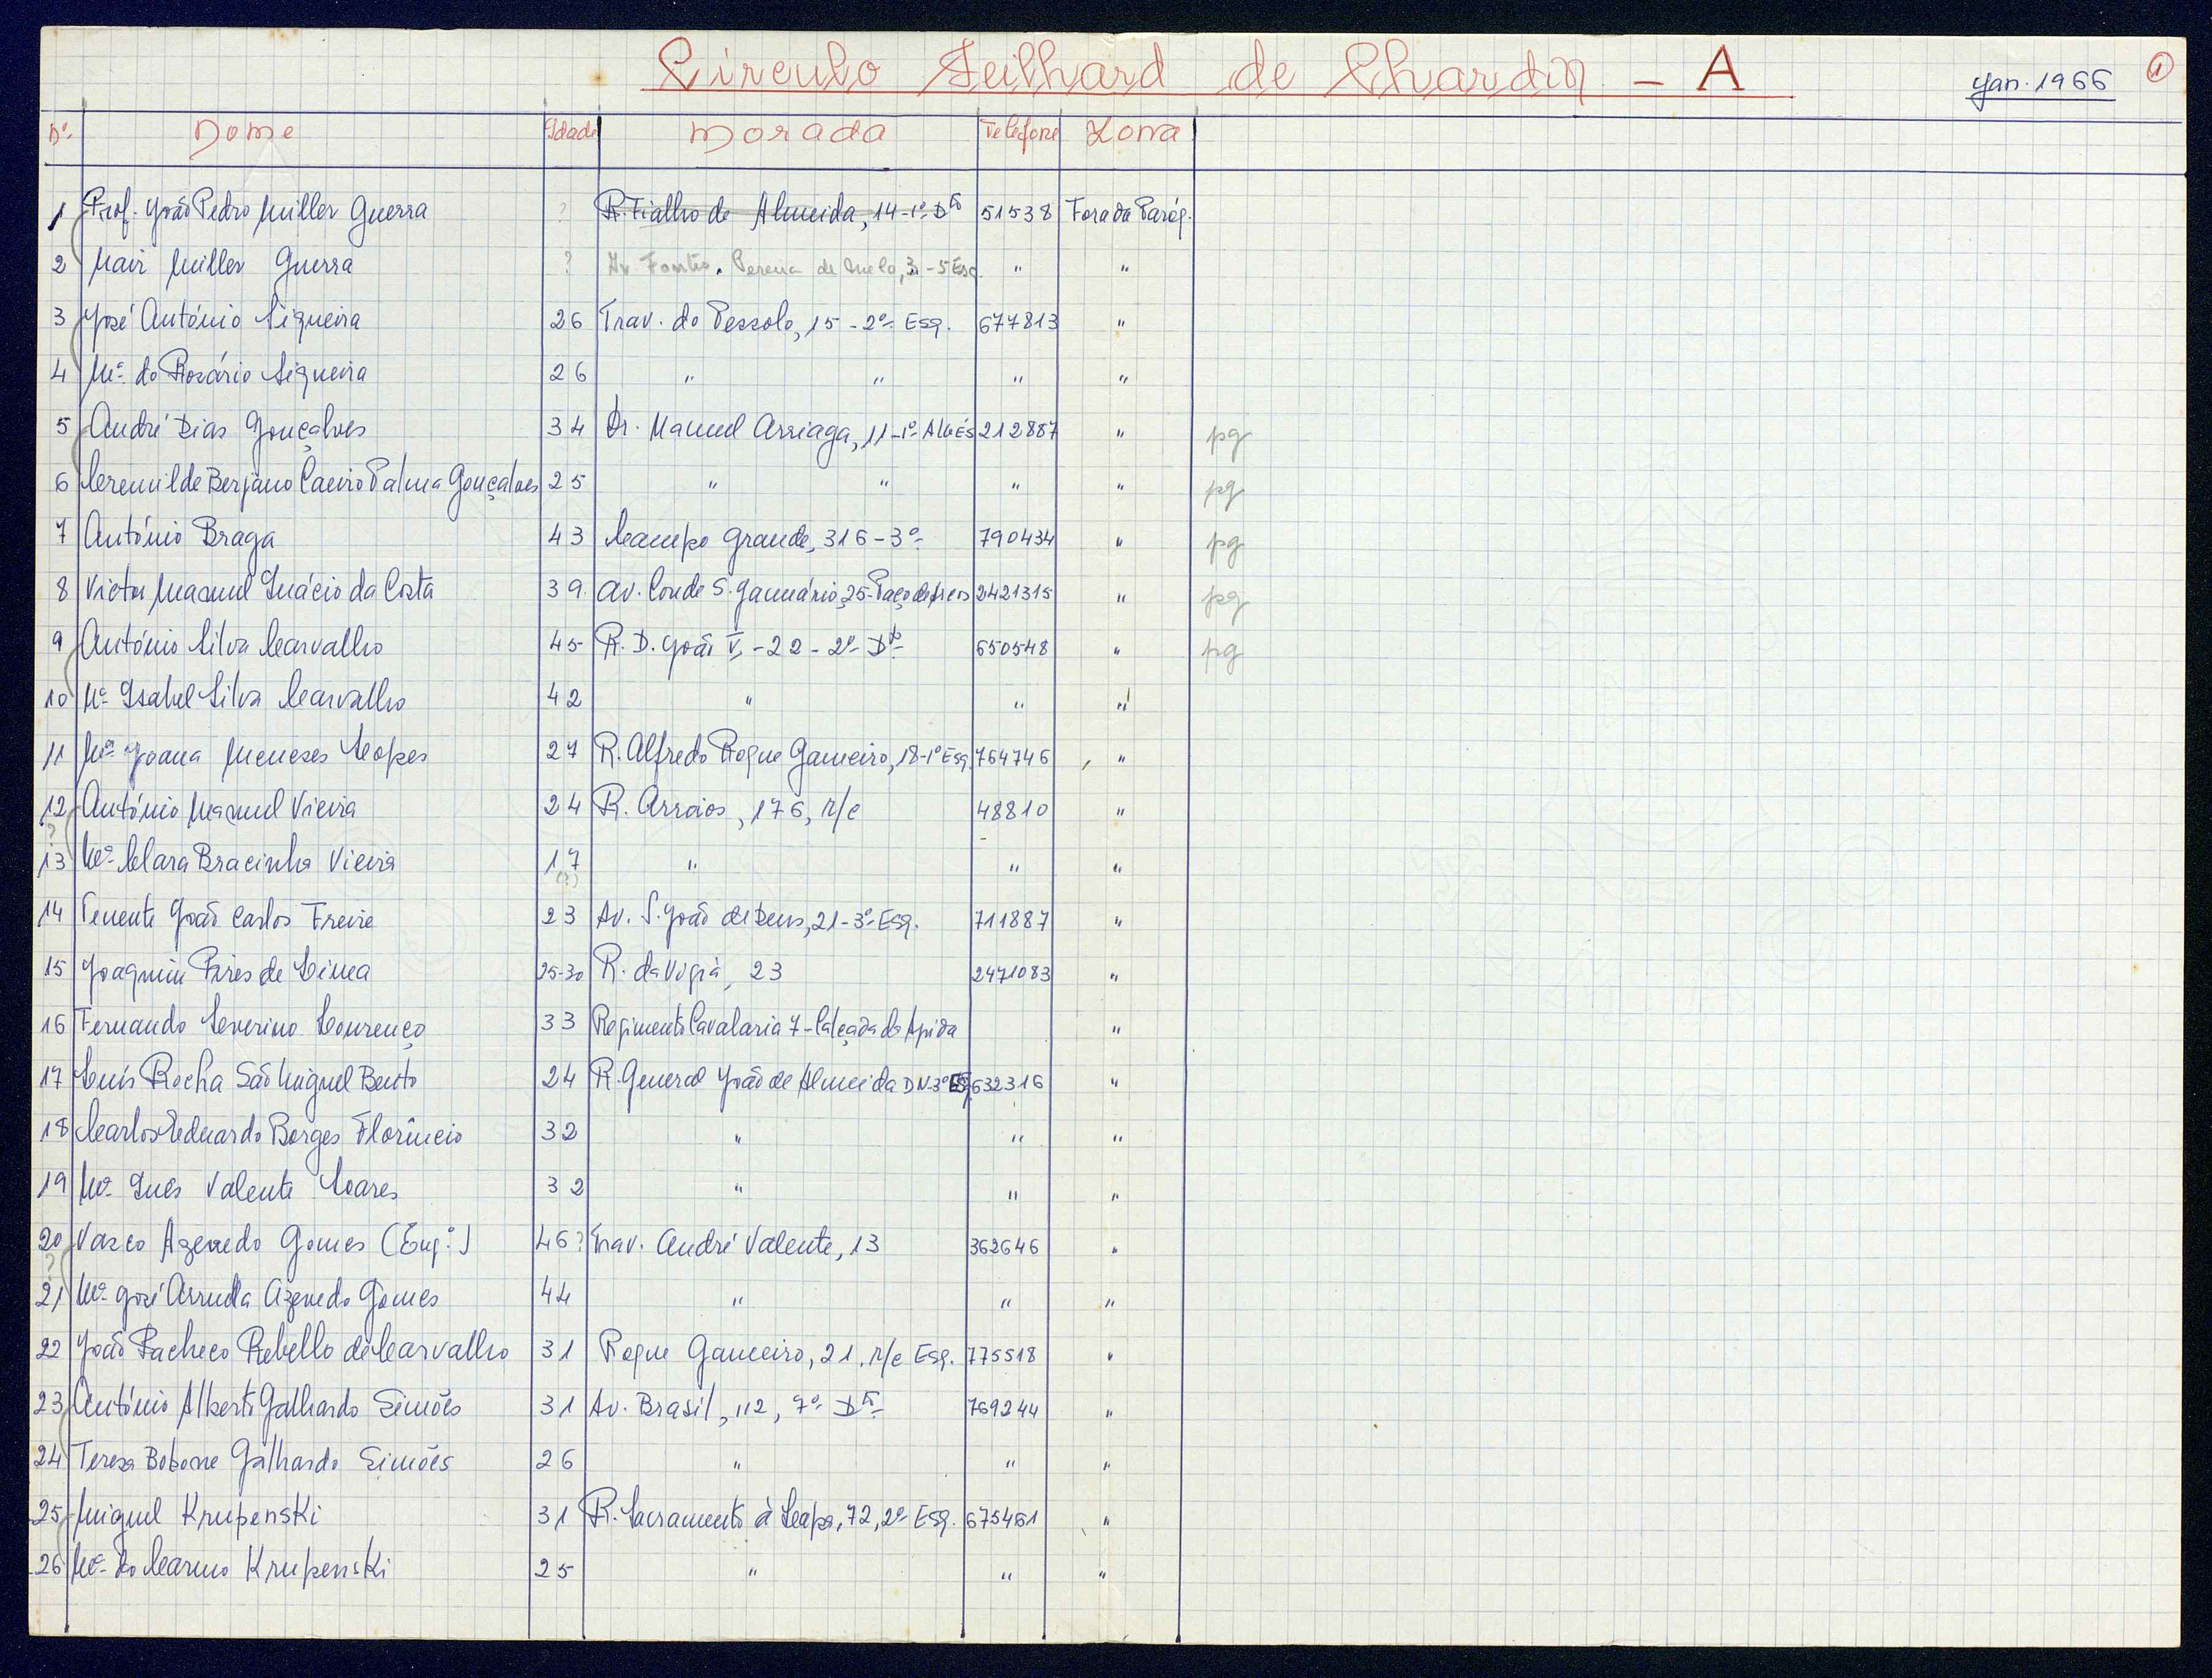 Circulo Teilhard de Chardin - A Jan. 1966 1
Nº Nome Idade Morada Telefone Zona
1 Prof. João Pedro Miller Guerra ? R. Fialho de Almeida, 14-1º Dto 51538 Fora da Paróq.
2 Mair Miller Guerra ? Av. Fontes Pereira de Melo, 3-5 Esq. " "
3 José António Siqueira 26 Trav. do Pessolo, 15-2º Esq. 677813 "
4 Mª do Rosário Siqueira 26 " " " "
5 André Dias Gonçalves 34 Dr. Manuel Arriaga, 11-1º Algés 212887 " pg
6 Cremilde Berjano Caeiro Palma Gonçalves 25 " " " " pg
7 António Braga 43 Campo Grande, 316-3º 790434 " pg
8 Victor Manuel Inácio da Costa 39 Av. Conde S. Januário, 25-Paço de Arcos 2421315 " pg
9 António Silva Carvalho 45 R. D. João V, -22-2º Dto 650548 " pg
10 Mª Isabel Silva Carvalho 42 " " "
11 Mª Joana Meneses Lopes 27 R. Alfredo Roque Gameiro, 18-1º Esq. 764746 "
12 António Manuel Vieira 24 R. Arroios, 176, r/c 48810 "
?
13 Mª Clara Bracinha Vieira 17 " " "
(?)
14 Tenente João Carlos Freire 23 Av. S. João de Deus, 21-3º Esq. 711887 "
15 Joaquim Pires de Lima 25-30 R. da Vigia, 23 2471083 "
16 Fernando Severino Lourenço 33 Regimento Cavalaria 7-Calçada da Ajuda "
17 Luís Rocha São Miguel Bento 24 R. General João de Almeida DN-3º Esq. 632316 "
18 Carlos Eduardo Borges Florêncio 32 " " "
19 Mª Inês Valente Soares 32 " " "
20 Vasco Azevedo Gomes (Eng.º) 46? Trav. André Valente, 13 362646 "
?
21 Mª José Arruda Azevedo Gomes 44 " " "
22 João Pacheco Rebello de Carvalho 31 Roque Gameiro, 21, r/c Esq. 775518 "
23 António Alberto Galhardo Simões 31 Av. Brasil, 112, 7º Dto 769244 "
24 Teresa Bobone Galhardo Simões 26 " " "
25 Miguel Krupenski 31 R. Sacramento à Lapa, 72, 2º Esq. 675461 "
26 Mª do Carmo Krupenski 25 " " "